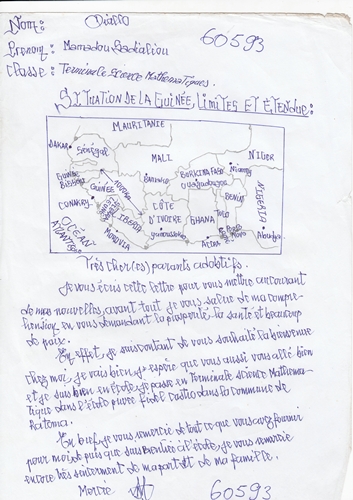 Nom: Diallo
60593
Prenom: Mamadou Sadialiou
Classe: Terminale Science Mathematiques.
SITUATION DE LA GUINÉE, LIMITES ET ETENDUE:
MAURITANIE
DAKAR Sénégal MALI NIGER
Guinée Bissau GUINEE Bamako BURKINA FASO Ouagadougou Niamey
CONAKRY BENIN NIGERIA
LIBERIA CÔTE D'IVOIRE GHANA TOGO
OCÉAN ATLANTIQUE MONROVIA Yamoussokro Accra Porto Novo Abudja
Très cher(es) parents adobtifs.
Je vous écris cette lettre pour vous mettre au courant
de mas nouvelles, avant tout je vous salue de ma compre-
hension en vous demandant la prosperité la santé et beaucoup
de paix.
En effet, je suis contant de vous souhaité la bienvenue
chez moi, je vais bien, j'espère que vous aussi vous allé bien
et je suis bien en école, je passe en Terminale science Mathema-
tique dans l'école privée fidel castro dans la commune de
Ratoma.
En bref je vous remercie de tout ce que vous avez fournir
pour moi depuis que suis à l'école, je vous remercie
encore très sincerment de ma part et de ma famille.
Mercie
60593